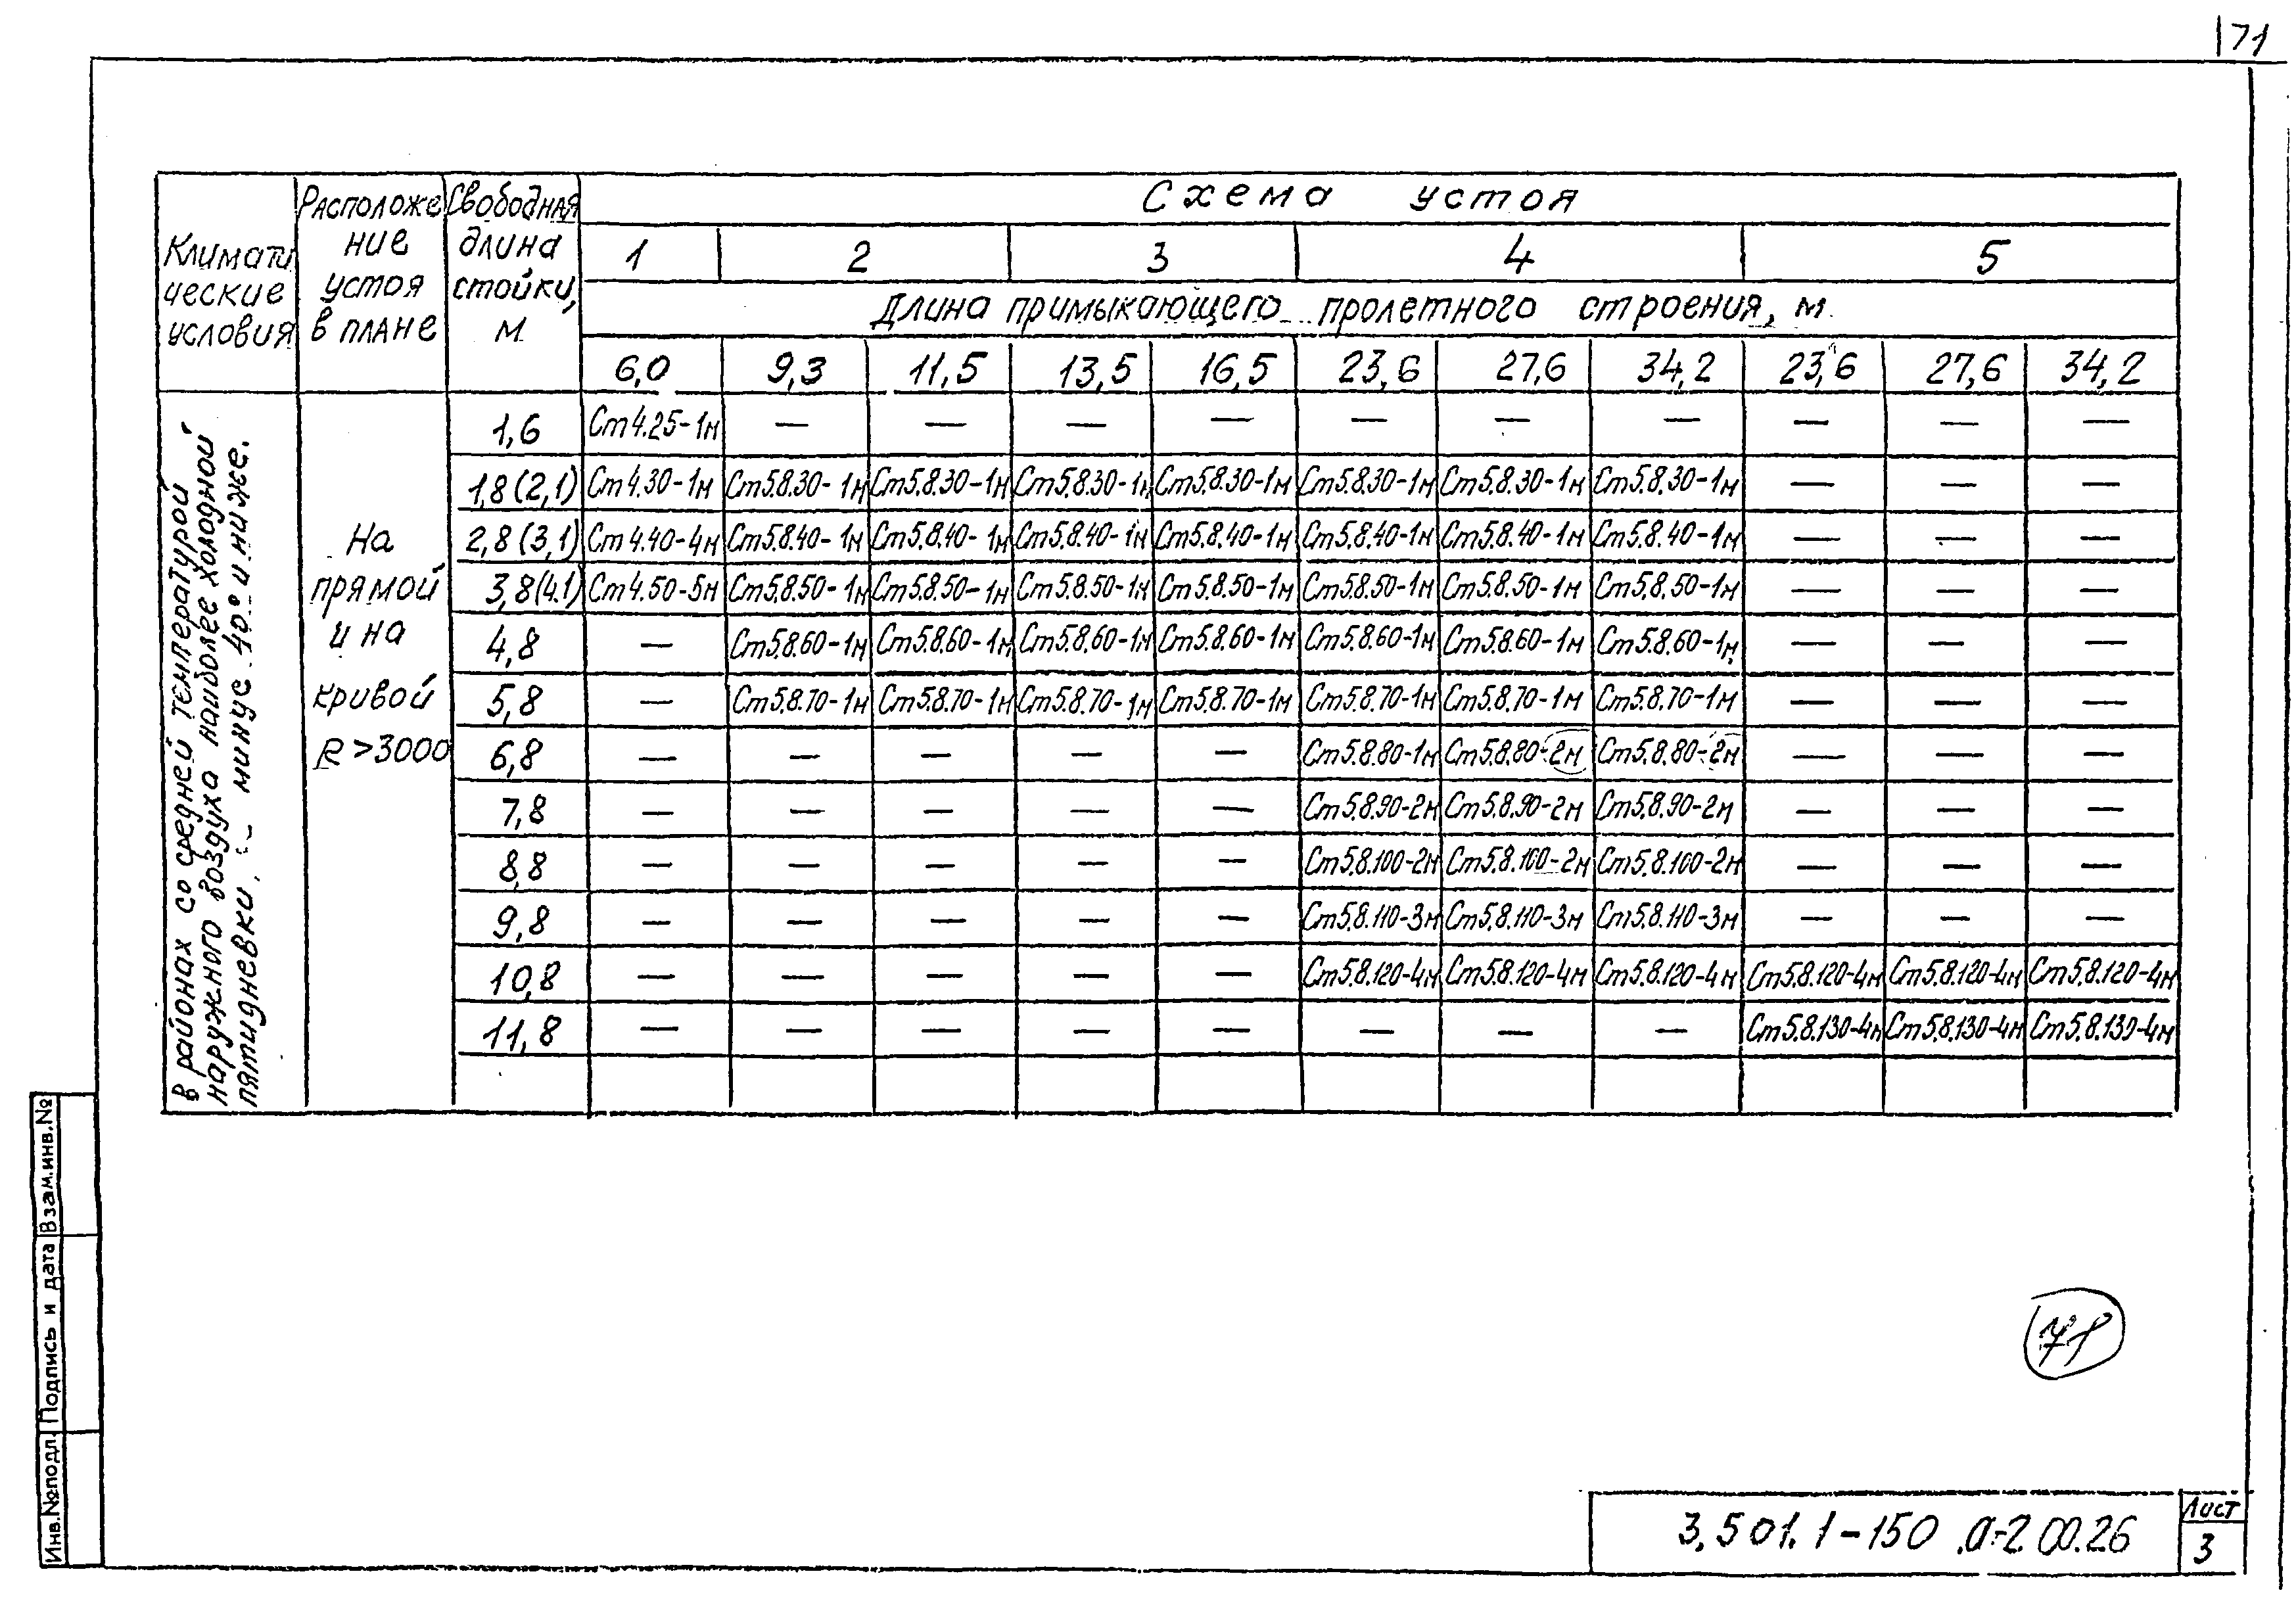 71
Климати
ческие
условия
Расположе
ние
устоя
в плане
Свободная
длина
стойки,
м
Схема устоя
1 2 3 4 5
Длина примыкающего пролетного строения, м
6,0 9,3 11,5 13,5 16,5 23,6 27,6 34,2 23,6 27,6 34,2
В районах со средней температурой
наружного воздуха наиболее холодной
пятидневки, - минус 40° и ниже.
На
прямой
и на
кривой
R >3000
1,6 Ст4.25-1м — — — — — — — — — —
1,8(2,1) Ст4.30-1м Ст5.8.30-1м Ст5.8.30-1м Ст5.8.30-1м Ст5.8.30-1м Ст5.8.30-1м Ст5.8.30-1м Ст5.8.30-1м — — —
2,8(3,1) Ст4.40-4м Ст5.8.40-1м Ст5.8.40-1м Ст5.8.40-1м Ст5.8.40-1м Ст5.8.40-1м Ст5.8.40-1м Ст5.8.40-1м — — —
3,8(4.1) Ст4.50-5м Ст5.8.50-1м Ст5.8.50-1м Ст5.8.50-1м Ст5.8.50-1м Ст5.8.50-1м Ст5.8.50-1м Ст5.8.50-1м — — —
4,8 — Ст5.8.60-1м Ст5.8.60-1м Ст5.8.60-1м Ст5.8.60-1м Ст5.8.60-1м Ст5.8.60-1м Ст5.8.60-1м — — —
5,8 — Ст5.8.70-1м Ст5.8.70-1м Ст5.8.70-1м Ст5.8.70-1м Ст5.8.70-1м Ст5.8.70-1м Ст5.8.70-1м — — —
6,8 — — — — — Ст5.8.80-1м Ст5.8.80-2м Ст5.8.80-2м — — —
7,8 — — — — — Ст5.8.90-2м Ст5.8.90-2м Ст5.8.90-2м — — —
8,8 — — — — — Ст5.8.100-2м Ст5.8.100-2м Ст5.8.100-2м — — —
9,8 — — — — — Ст5.8.110-3м Ст5.8.110-3м Ст5.8.110-3м — — —
10,8 — — — — — Ст5.8.120-4м Ст5.8.120-4м Ст5.8.120-4м Ст5.8.120-4м Ст5.8.120-4м Ст5.8.120-4м
11,8 — — — — — — — — Ст5.8.130-4м Ст5.8.130-4м Ст5.8.130-4м
Инв.№подл. Подпись и дата Взам.инв.№
71
3.501.1-150.0-2 00.26
Лист
3